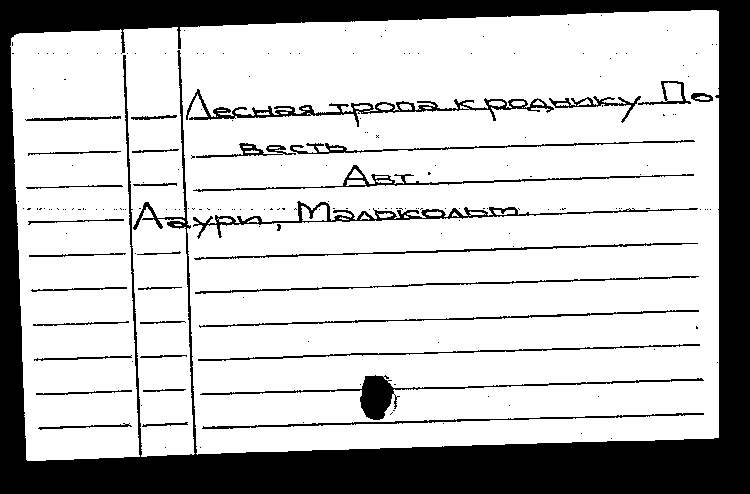 Лесная тропа к роднику По-
весть
Авт.:
Лаури, Малькольм.